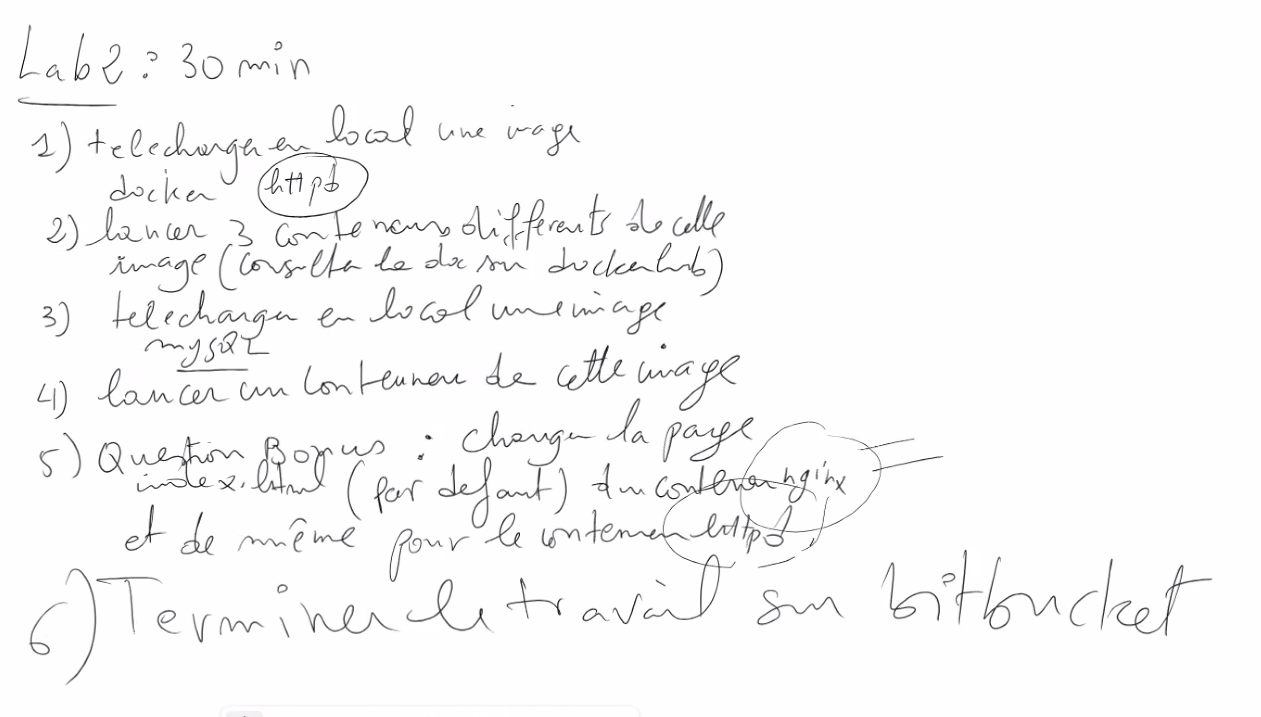 Lab2 : 30 min
1) telecharger en local une image
docker httpd
2) lancer 3 conteneurs différents de cette
image (consulter le doc sur dockerhub)
3) telecharger en local une image
mySQL
4) lancer un conteneur de cette image
5) Question Bonus : changer la page
index.html (par defaut) du conteneur nginx
et de même pour le conteneur httpd
6) Terminer le travail sur bitbucket